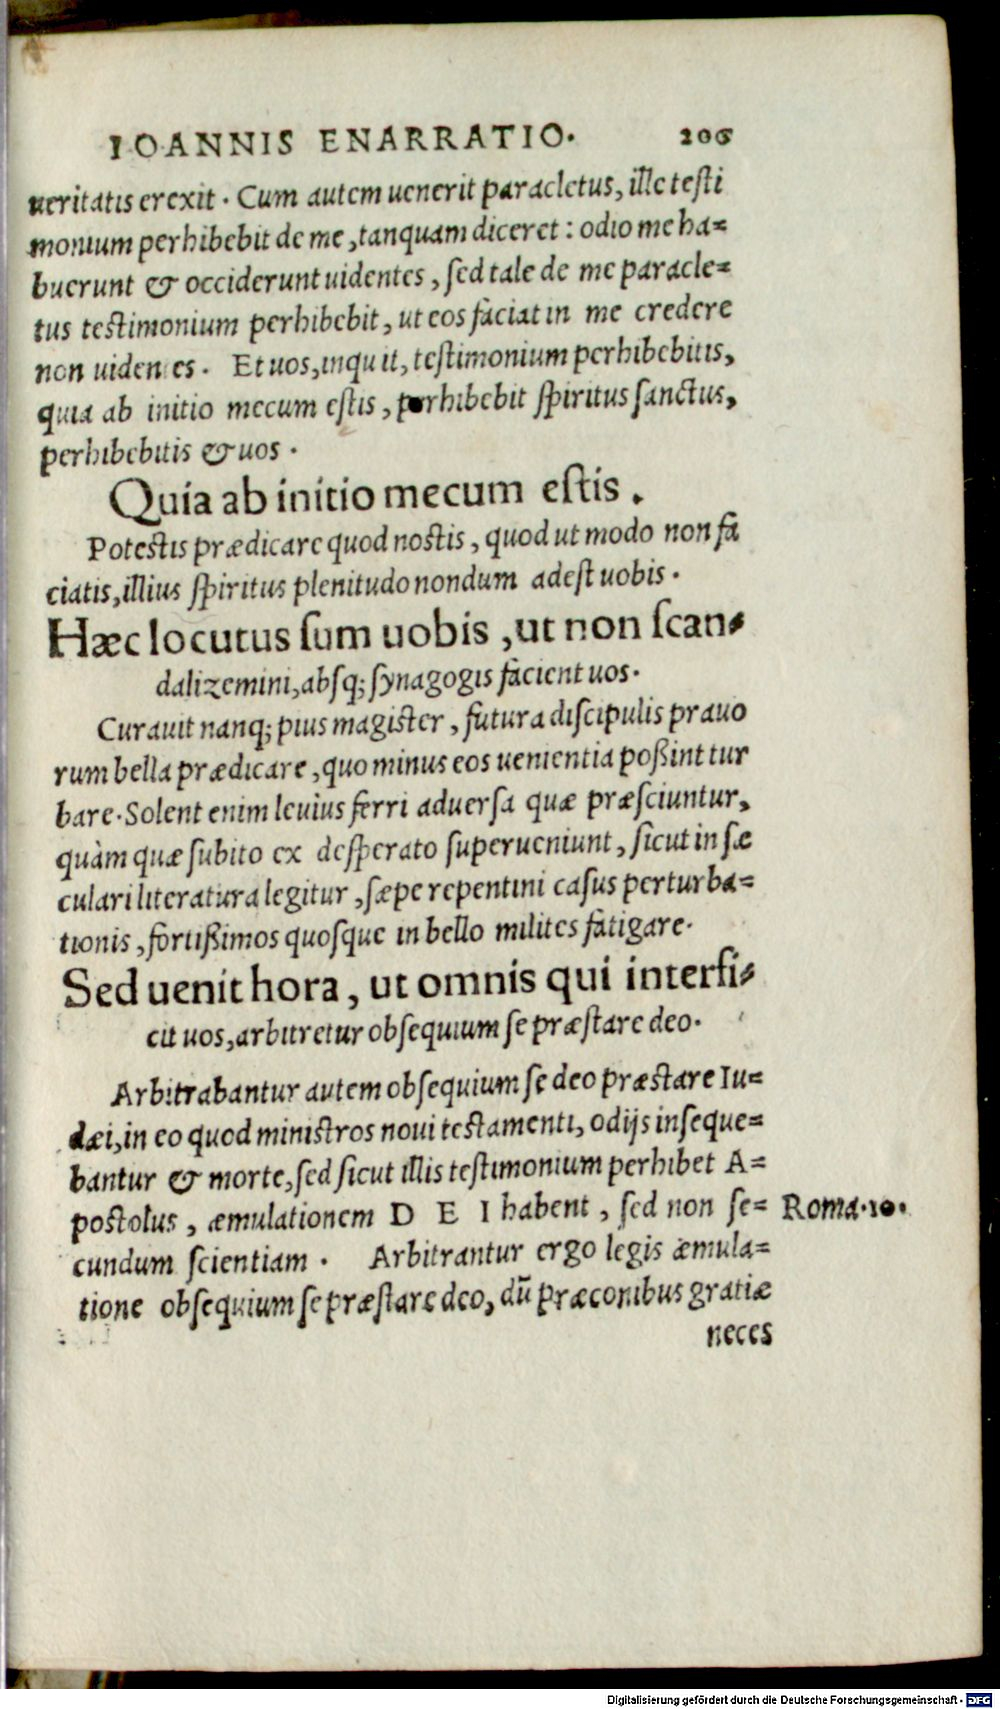 IOANNIS ENARRATIO. 206
ueritatis erexit. Cum autem uenerit paracletus, ille testi
monium perhibebit de me, tanquam diceret: odio me ha=
buerunt & occiderunt uidentes, sed tale de me paracle=
tus testimonium perhibebit, ut eos faciat in me credere
non uidentes. Et uos, inquit, testimonium perhibebitis,
quia ab initio mecum estis, perhibebit spiritus sanctus,
perhibebitis & uos.
Quia ab initio mecum estis.
Potestis prædicare quod nostis, quod ut modo non fa
ciatis, illius spiritus plenitudo nondum adest uobis.
Hæc locutus sum uobis, ut non scan=
dalizemini, absq; synagogis facient uos.
Curauit nanq; pius magister, futura discipulis prauo
rum bella prædicare, quo minus eos uenientia poßint tur
bare. Solent enim leuius ferri aduersa quæ præsciuntur,
quàm quæ subito ex desperato superueniunt, sicut in sæ
culari literatura legitur, sæpe repentini casus perturba=
tionis, fortißimos quosque in bello milites fatigare.
Sed uenit hora, ut omnis qui interfi=
cit uos, arbitretur obsequium se præstare deo.
Arbitrabantur autem obsequium se deo præstare Iu=
dæi, in eo quod ministros noui testamenti, odijs inseque=
bantur & morte, sed sicut illis testimonium perhibet A=
postolus, æmulationem D E I habent, sed non se= Roma.10.
cundum scientiam. Arbitrantur ergo legis æmula=
tione obsequium se præstare deo, dũ præconibus gratiæ
neces
Digitalisierung gefördert durch die Deutsche Forschungsgemeinschaft - DFG